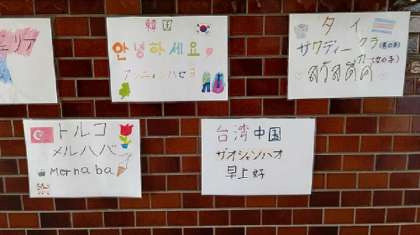 韓国
안녕하세요
アンニョンハセヨ
タイ
サワディー クラ(男の子)
カ(女の子)
สวัสดี
トルコ
メルハバ
mernaba
台湾中国
ザオシャンハオ
早上好